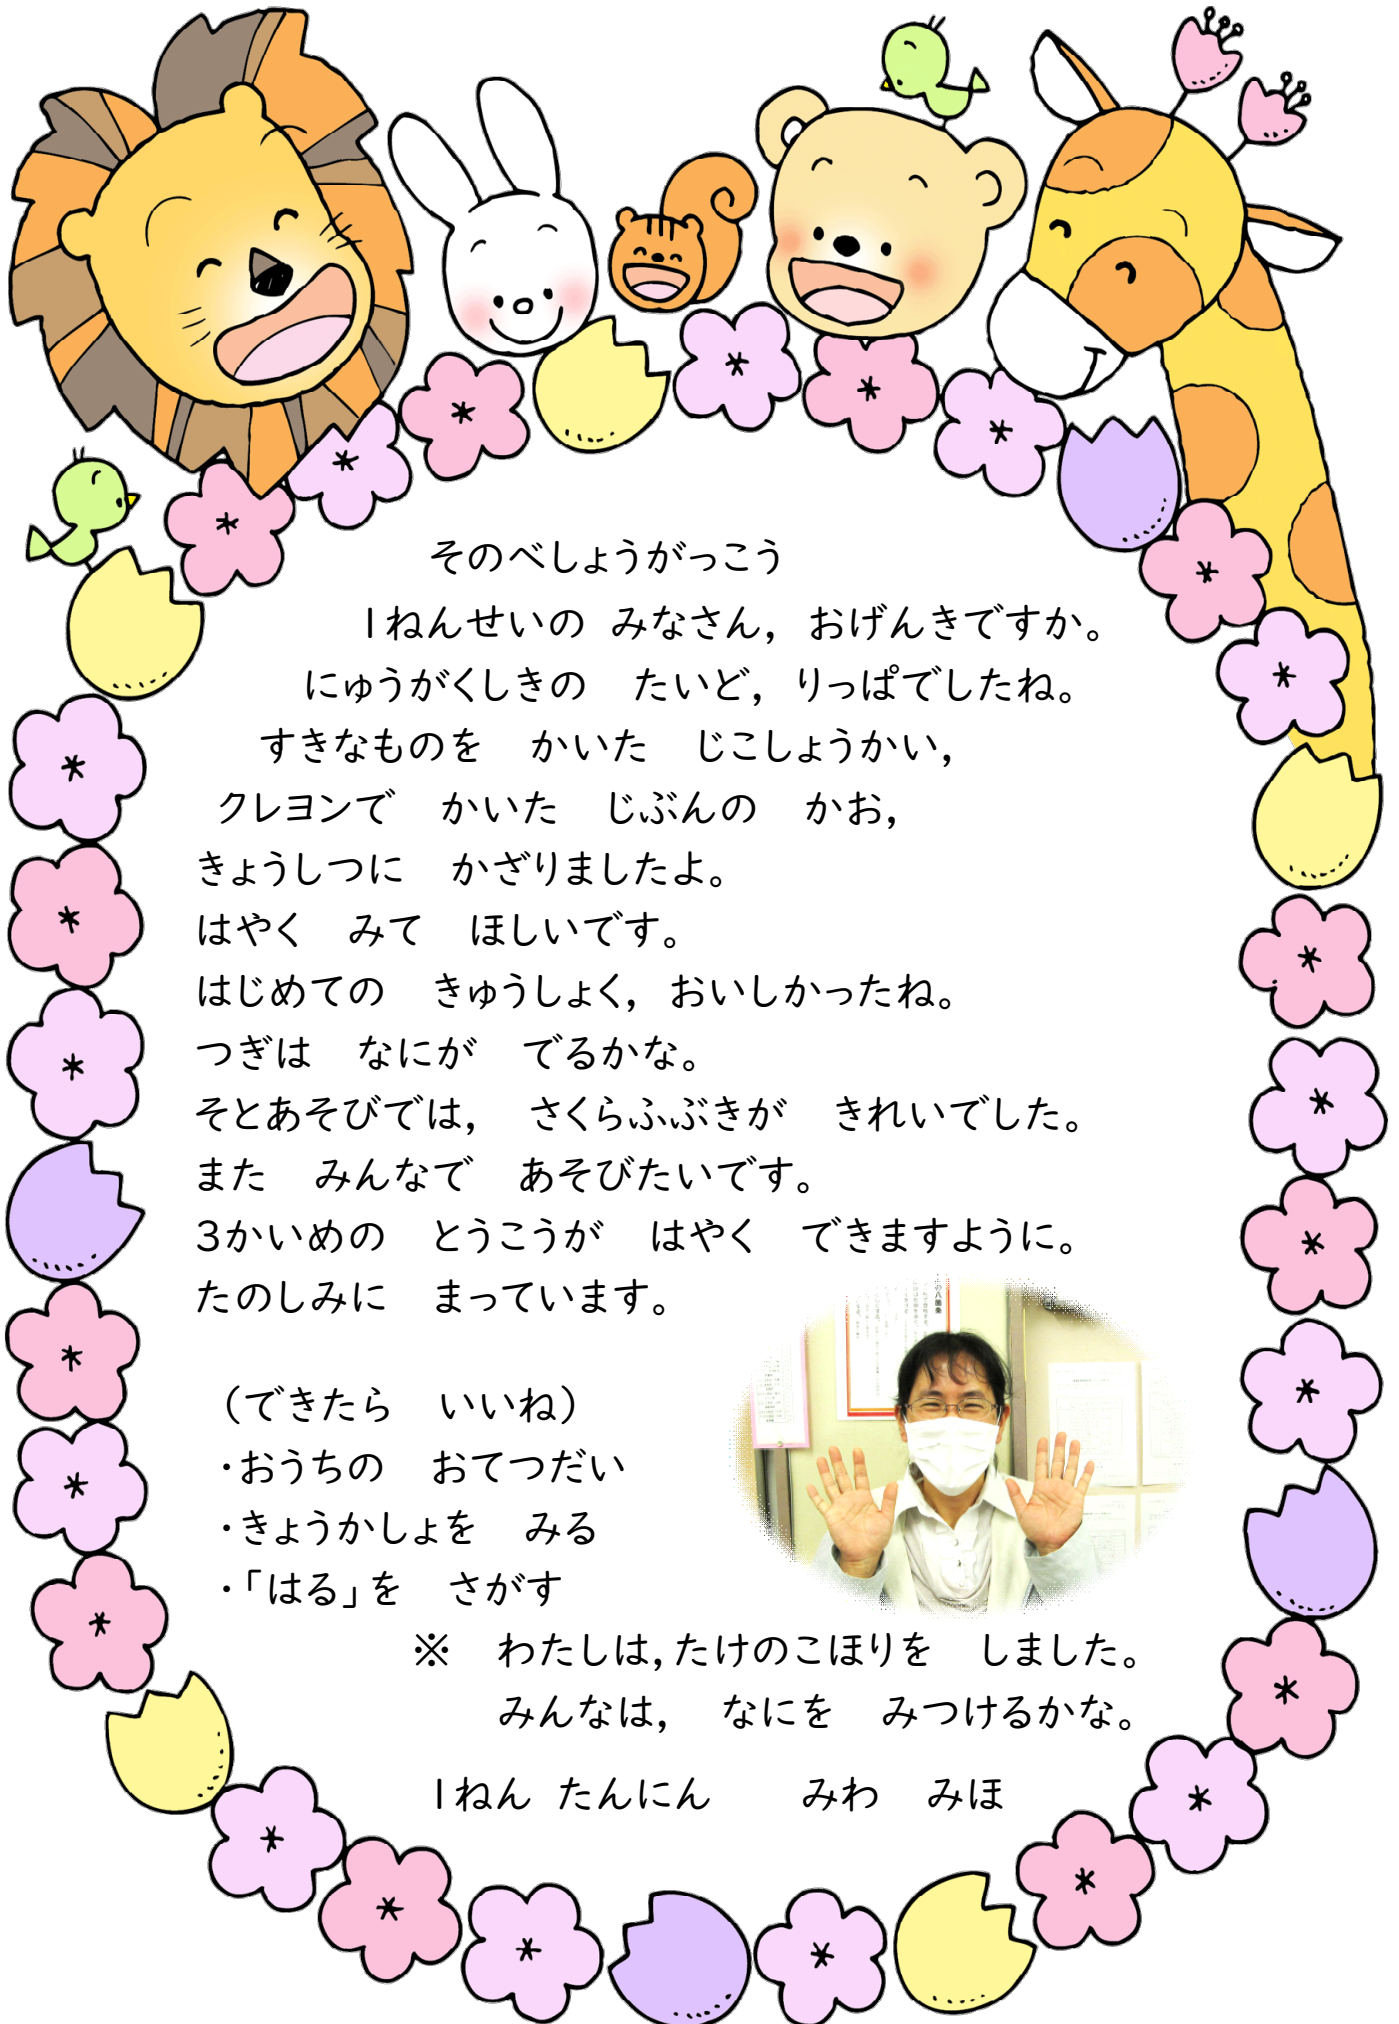 そのべしょうがっこう
1ねんせいの みなさん, おげんきですか。
にゅうがくしきの　たいど, りっぱでしたね。
すきなものを　かいた　じこしょうかい,
クレヨンで　かいた　じぶんの　かお,
きょうしつに　かざりましたよ。
はやく　みて　ほしいです。
はじめての　きゅうしょく, おいしかったね。
つぎは　なにが　でるかな。
そとあそびでは,　さくらふぶきが　きれいでした。
また　みんなで　あそびたいです。
3かいめの　とうこうが　はやく　できますように。
たのしみに　まっています。
(できたら　いいね)
・おうちの　おてつだい
・きょうかしょを　みる
・「はる」を　さがす
※　わたしは,たけのこほりを　しました。
みんなは,　なにを　みつけるかな。
1ねん たんにん　　みわ　みほ